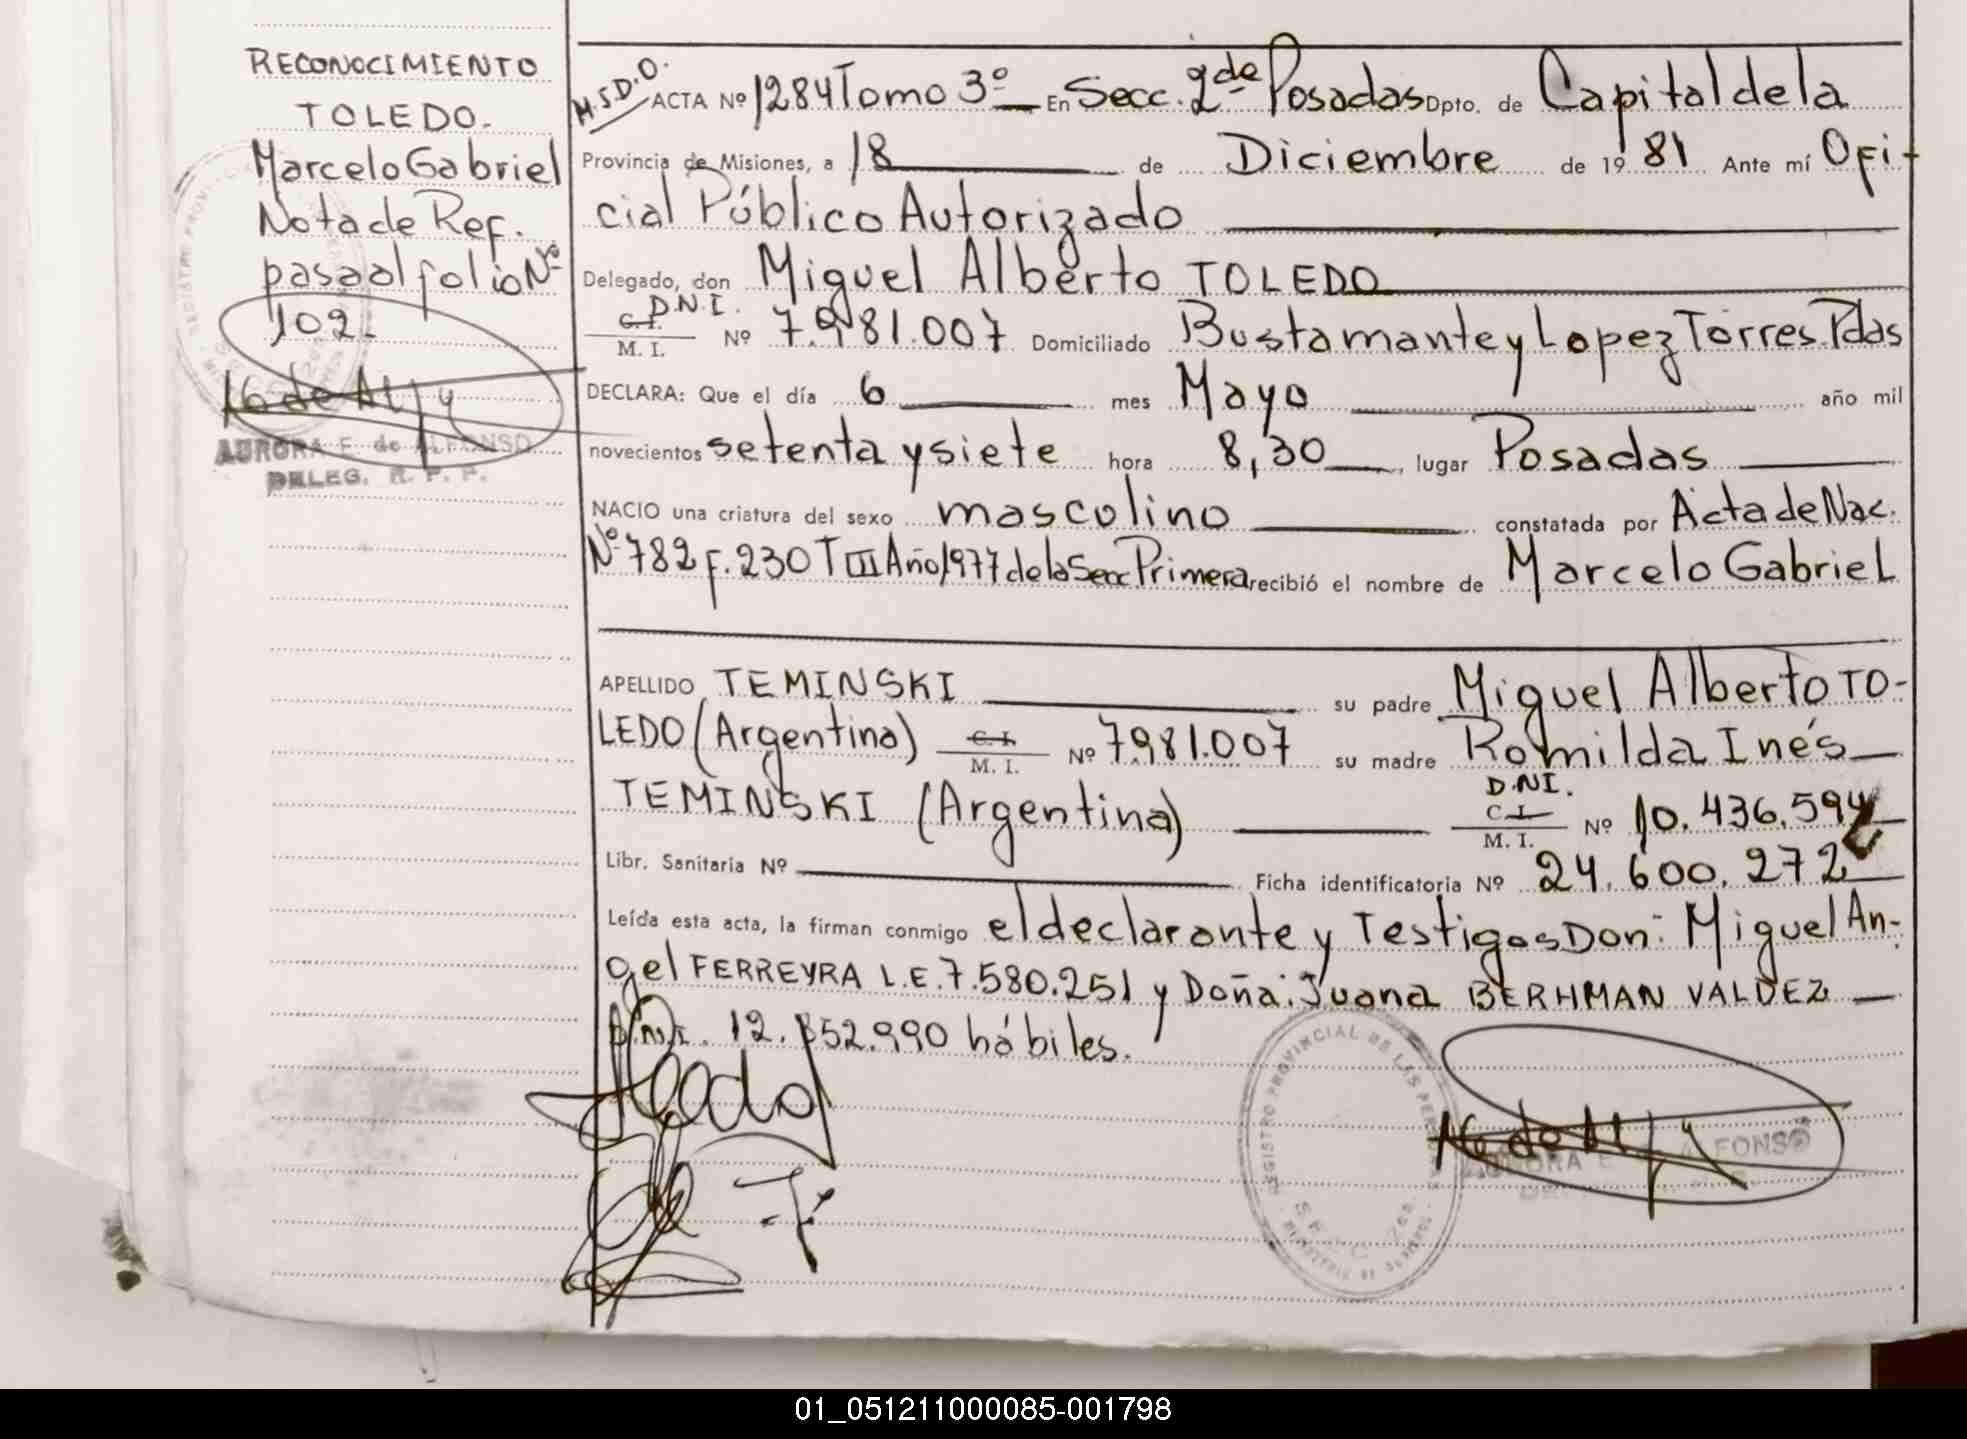 RECONOCIMIENTO
TOLEDO.
Marcelo Gabriel
Nota de Ref.
pasa al folio Nº
102.-
AURORA E. de ALFONSO
DELEG. R. P. P.
M.S.D.O. ACTA Nº 1284 Tomo 3º En Secc. 2da Posadas Dpto. de Capital de la
Provincia de Misiones, a 18 de Diciembre de 19 81 Ante mí Ofi-
cial Público Autorizado
Delegado, don Miguel Alberto TOLEDO
D.N.I.
C.I.
M. I. Nº 7.981.007 Domiciliado Bustamante y Lopez Torres. Pdas
DECLARA: Que el día 6 mes Mayo año mil
novecientos setenta y siete hora 8,30, lugar Posadas
NACIO una criatura del sexo mascolino constatada por Acta de Nac.
Nº 782 F. 230 T III Año 1977 de la Secc Primera recibió el nombre de Marcelo Gabriel
APELLIDO TEMINSKI su padre Miguel Alberto TO-
LEDO (Argentino) C.I. M. I. Nº 7.981.007 su madre Romilda Inés
TEMINSKI (Argentina) D.NI. C.I. M. I. Nº 10.436.594
Libr. Sanitaria Nº Ficha identificatoria Nº 24.600.272
Leída esta acta, la firman conmigo el declarante y Testigos Don: Miguel An-
gel FERREYRA L.E. 7.580.251 y Doña: Juana BERHMAN VALDEZ
D.N.I. 12.852.990 hábiles.
REGISTRO PROVINCIAL DE LAS PERSONAS
AURORA E. ALFONSO
01_051211000085-001798